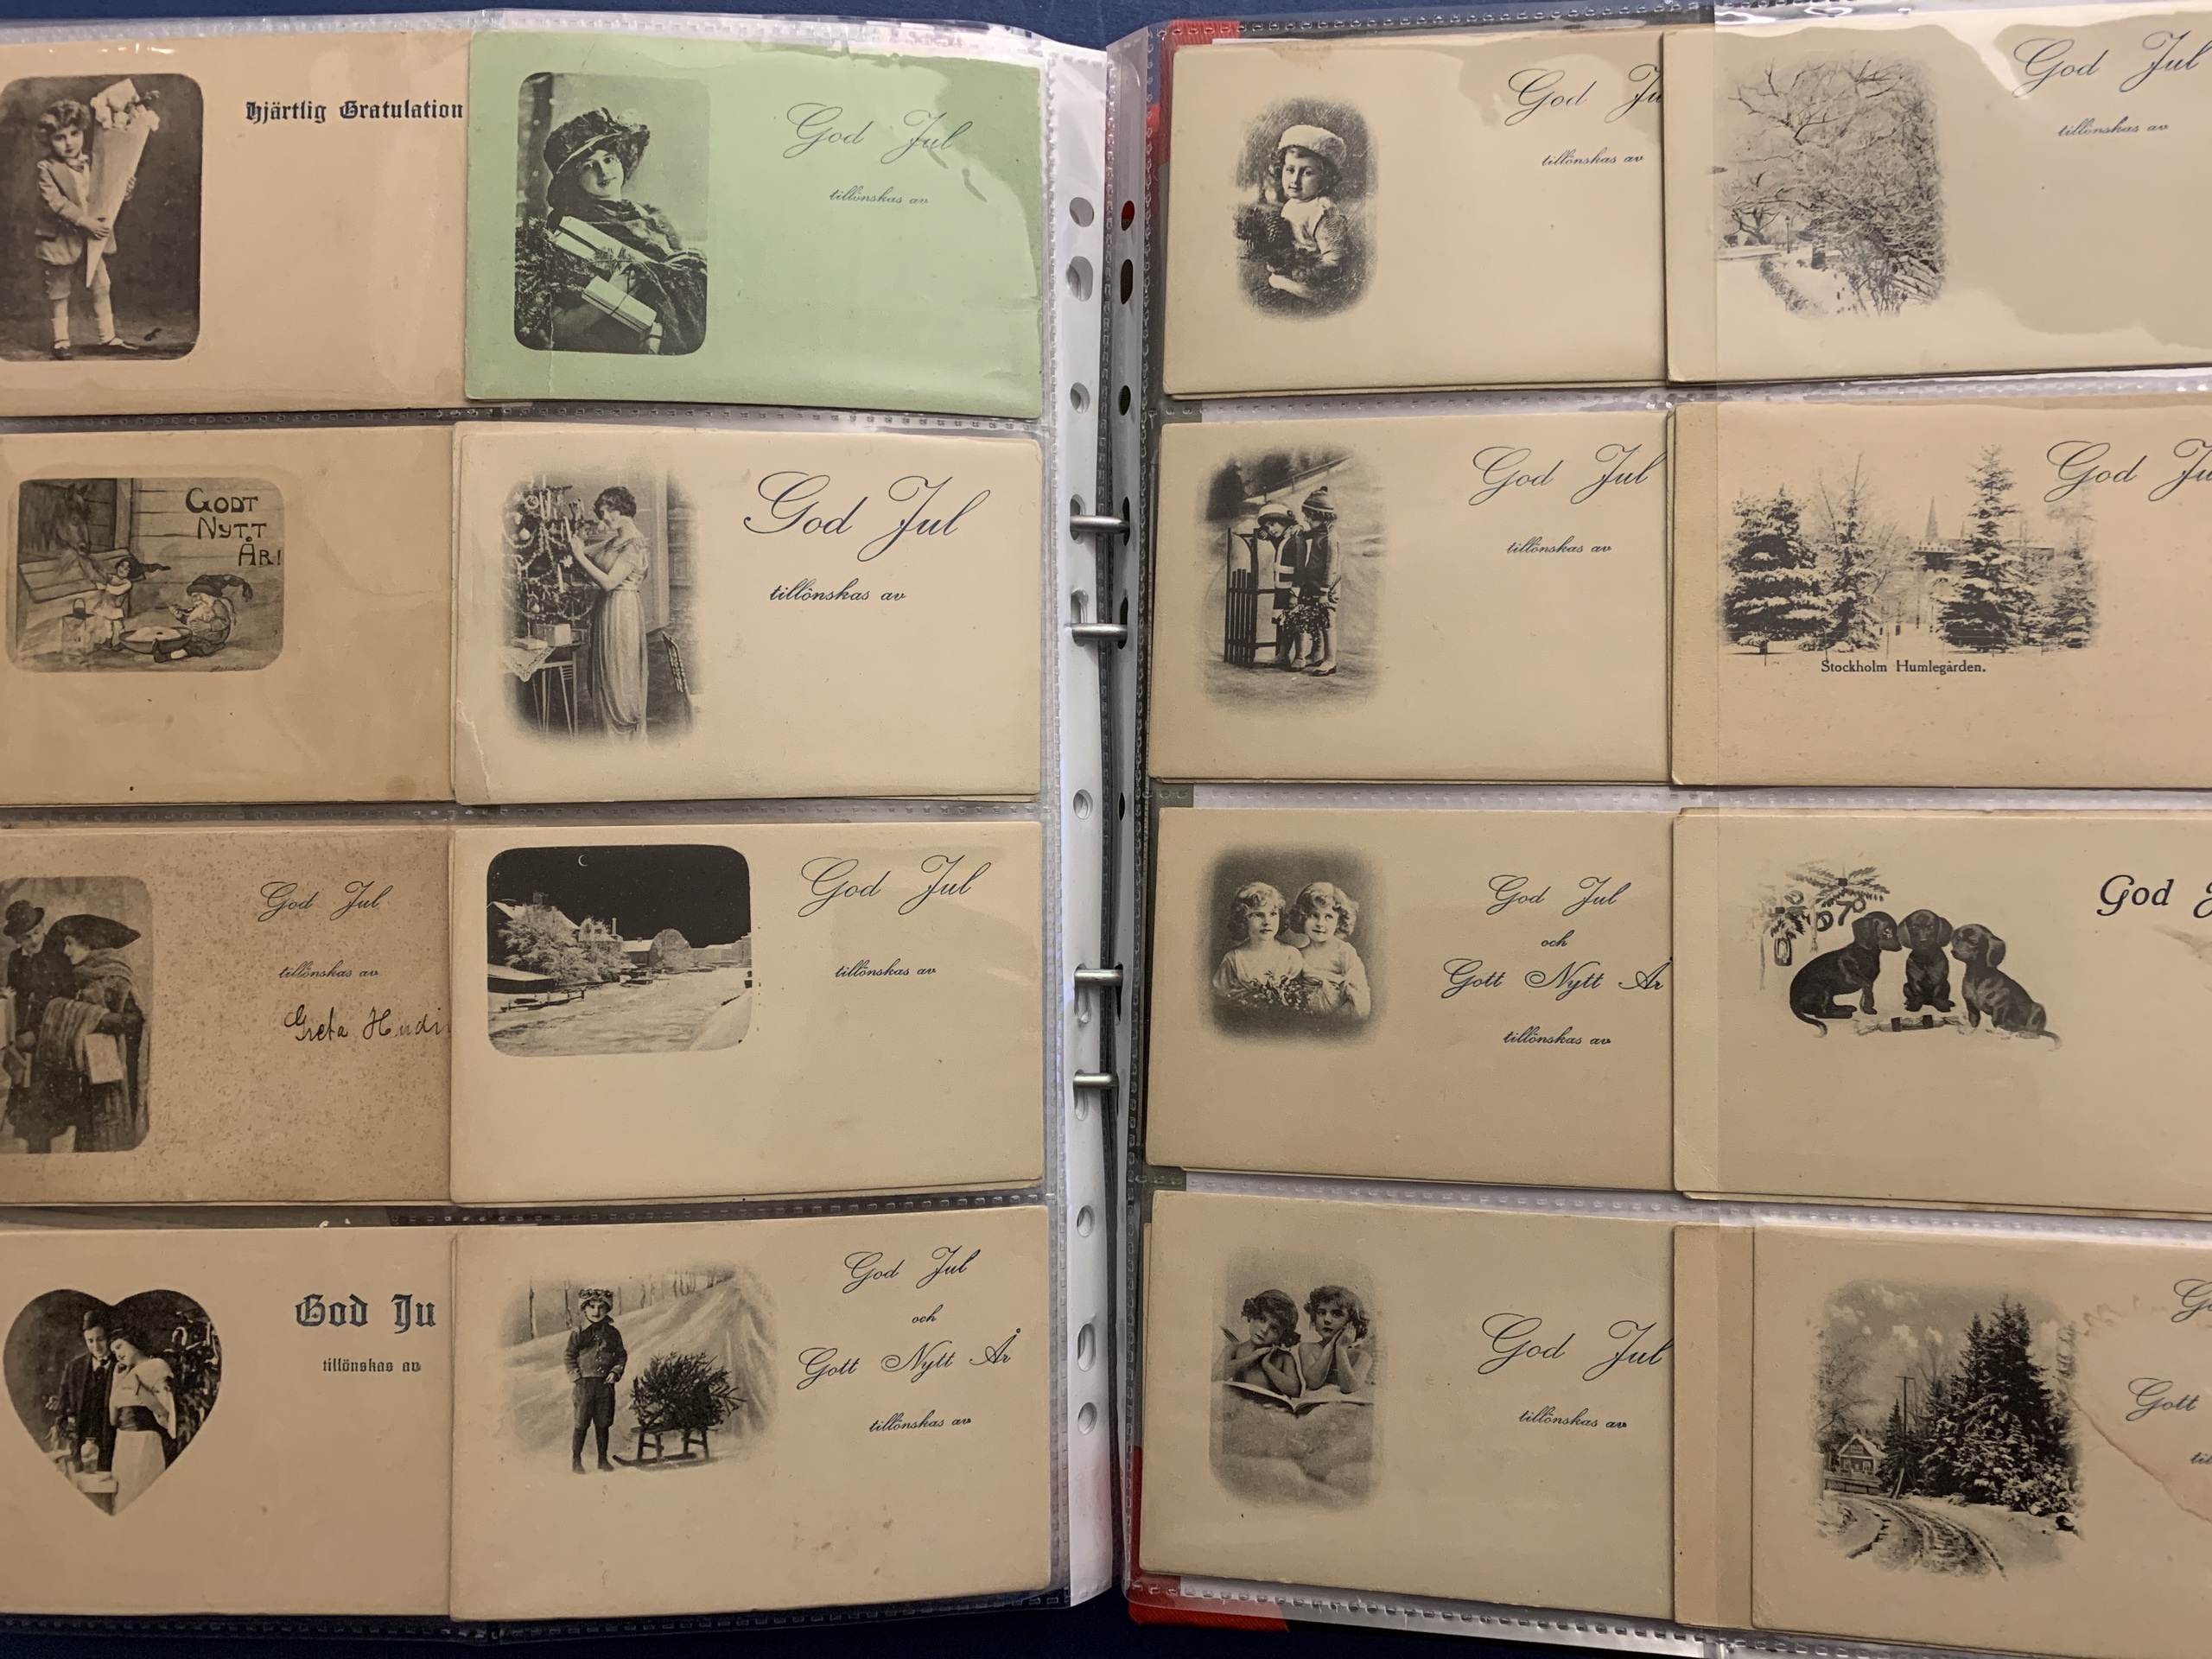 Hjärtlig Gratulation
God Jul
tillönskas av
GODT
NYTT
ÅR!
God Jul
tillönskas av
God Jul
tillönskas av
Greta
God Jul
tillönskas av
God Ju
tillönskas av
God Jul
och
Gott Nytt År
tillönskas av
God Ju
tillönskas av
God Jul
tillönskas av
God Jul
tillönskas av
God Ju
Stockholm Humlegården.
God Jul
och
Gott Nytt År
tillönskas av
God J
God Jul
tillönskas av
G
Gott
til